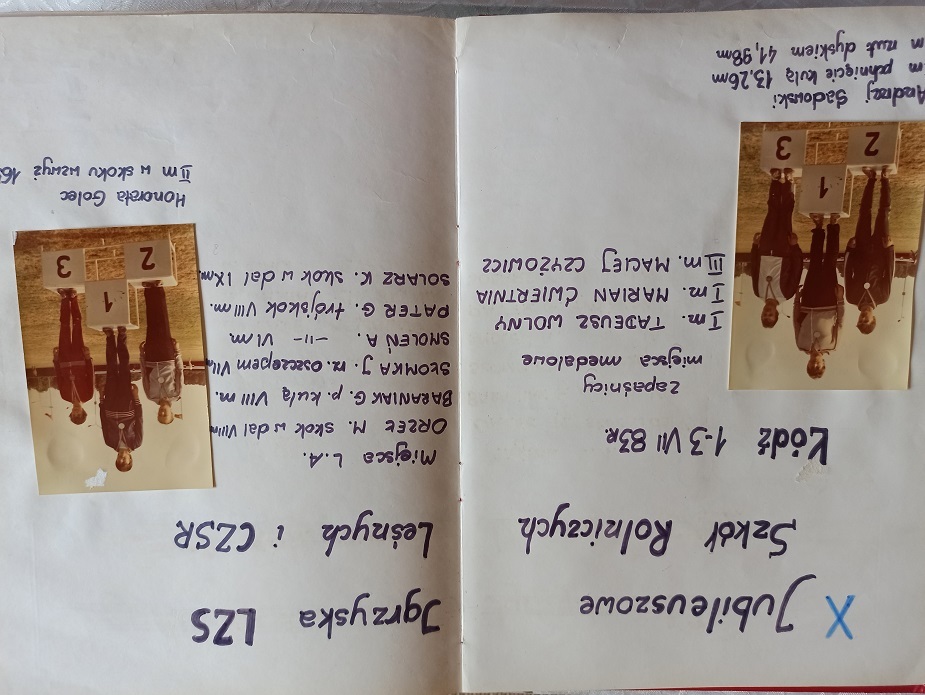 X Jubileuszowe
Szkół Rolniczych
Łódź 1-3 VII 83r.
zapaśnicy
miejsca medalowe
I m. TADEUSZ WOLNY
I m. MARIAN ĆWIERTNIA
III m. MACIEJ CZYŻOWICZ
2 1 3
Andrzej Sadowski
m pchnięcie kulą 13,26m
m rzut dyskiem 41,98m
Igrzyska LZS
Leśnych i CZSR
Miejsca L.A.
ORZEŁ M. skok w dal VIII m
BARANIAK G. p. kulą VIII m.
SŁOMKA J. rz. oszczepem VII m
SMOLEŃ A. -11- VI m
PATER G. trójskok VIII m.
SOLARZ K. skok w dal IX m.
2 1 3
Honorata Golec
II m w skoku wzwyż